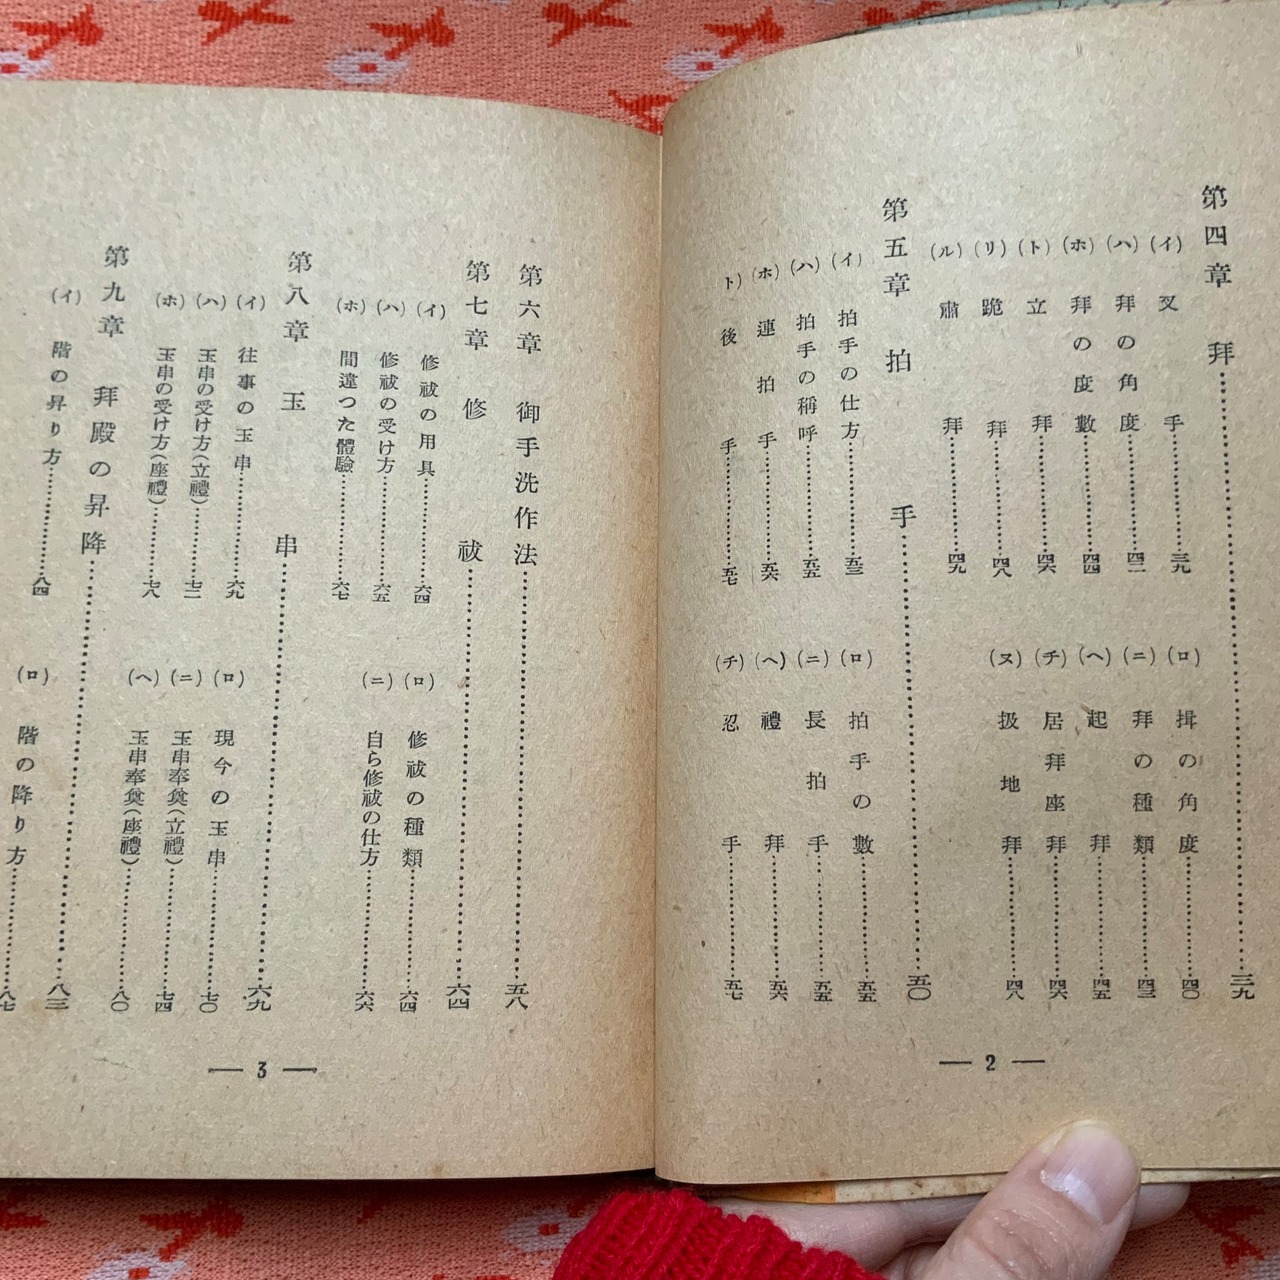 第四章 拜……三九
(イ) 叉手……三九
(ロ) 揖の角度……四〇
(ハ) 拜の角度……四二
(ニ) 拜の種類……四三
(ホ) 拜の度數……四四
(ヘ) 起拜……四五
(ト) 立拜……四六
(チ) 居拜座拜……四六
(リ) 跪拜……四八
(ヌ) 扱地拜……四八
(ル) 肅拜……四九
第五章 拍手……五〇
(イ) 拍手の仕方……五三
(ロ) 拍手の數……五五
(ハ) 拍手の稱呼……五五
(ニ) 長拍手……五五
(ホ) 連拍手……五六
(ヘ) 禮拜……五六
ト) 後手……五七
(チ) 忍手……五七
— 2 —
第六章 御手洗作法……五八
第七章 修祓……六四
(イ) 修祓の用具……六四
(ロ) 修祓の種類……六四
(ハ) 修祓の受け方……六五
(ニ) 自ら修祓の仕方……六六
(ホ) 間違つた體驗……六七
第八章 玉串……六九
(イ) 往事の玉串……六九
(ロ) 現今の玉串……七〇
(ハ) 玉串の受け方(立禮)……七二
(ニ) 玉串奉奠(立禮)……七四
(ホ) 玉串の受け方(座禮)……七八
(ヘ) 玉串奉奠(座禮)……八〇
第九章 拜殿の昇降……八三
(イ) 階の昇り方……八四
(ロ) 階の降り方……八七
— 3 —